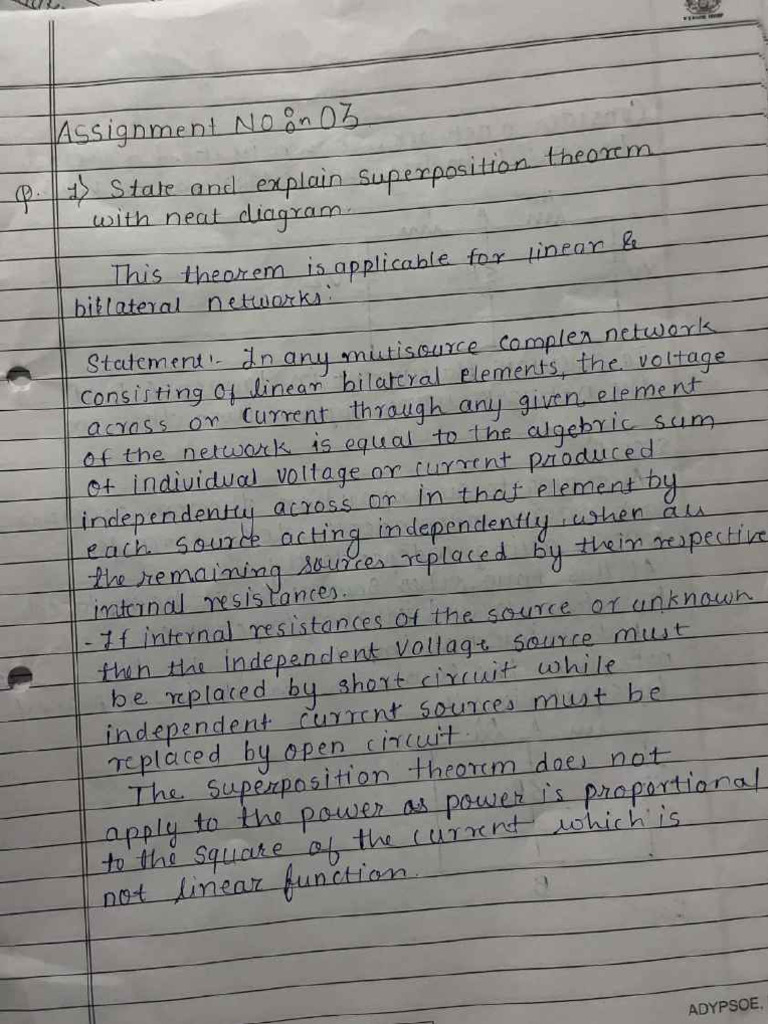 Assignment NO :- 03
Q. 1) State and explain superposition theorem
with neat diagram.
This theorem is applicable for linear &
billateral networks:
Statement:- In any mutisource complex network
consisting of linear bilateral elements, the voltage
across or current through any given element
of the network is equal to the algebric sum
of individual voltage or current produced
independently across or in that element by
each source acting independently, when all
the remaining sources replaced by their respective
internal resistances.
- If internal resistances of the source or unknown
then the independent voltage source must
be replaced by short circuit while
independent current sources must be
replaced by open circuit.
The superposition theorem does not
apply to the power as power is proportional
to the square of the current which is
not linear function.
ADYPSOE.